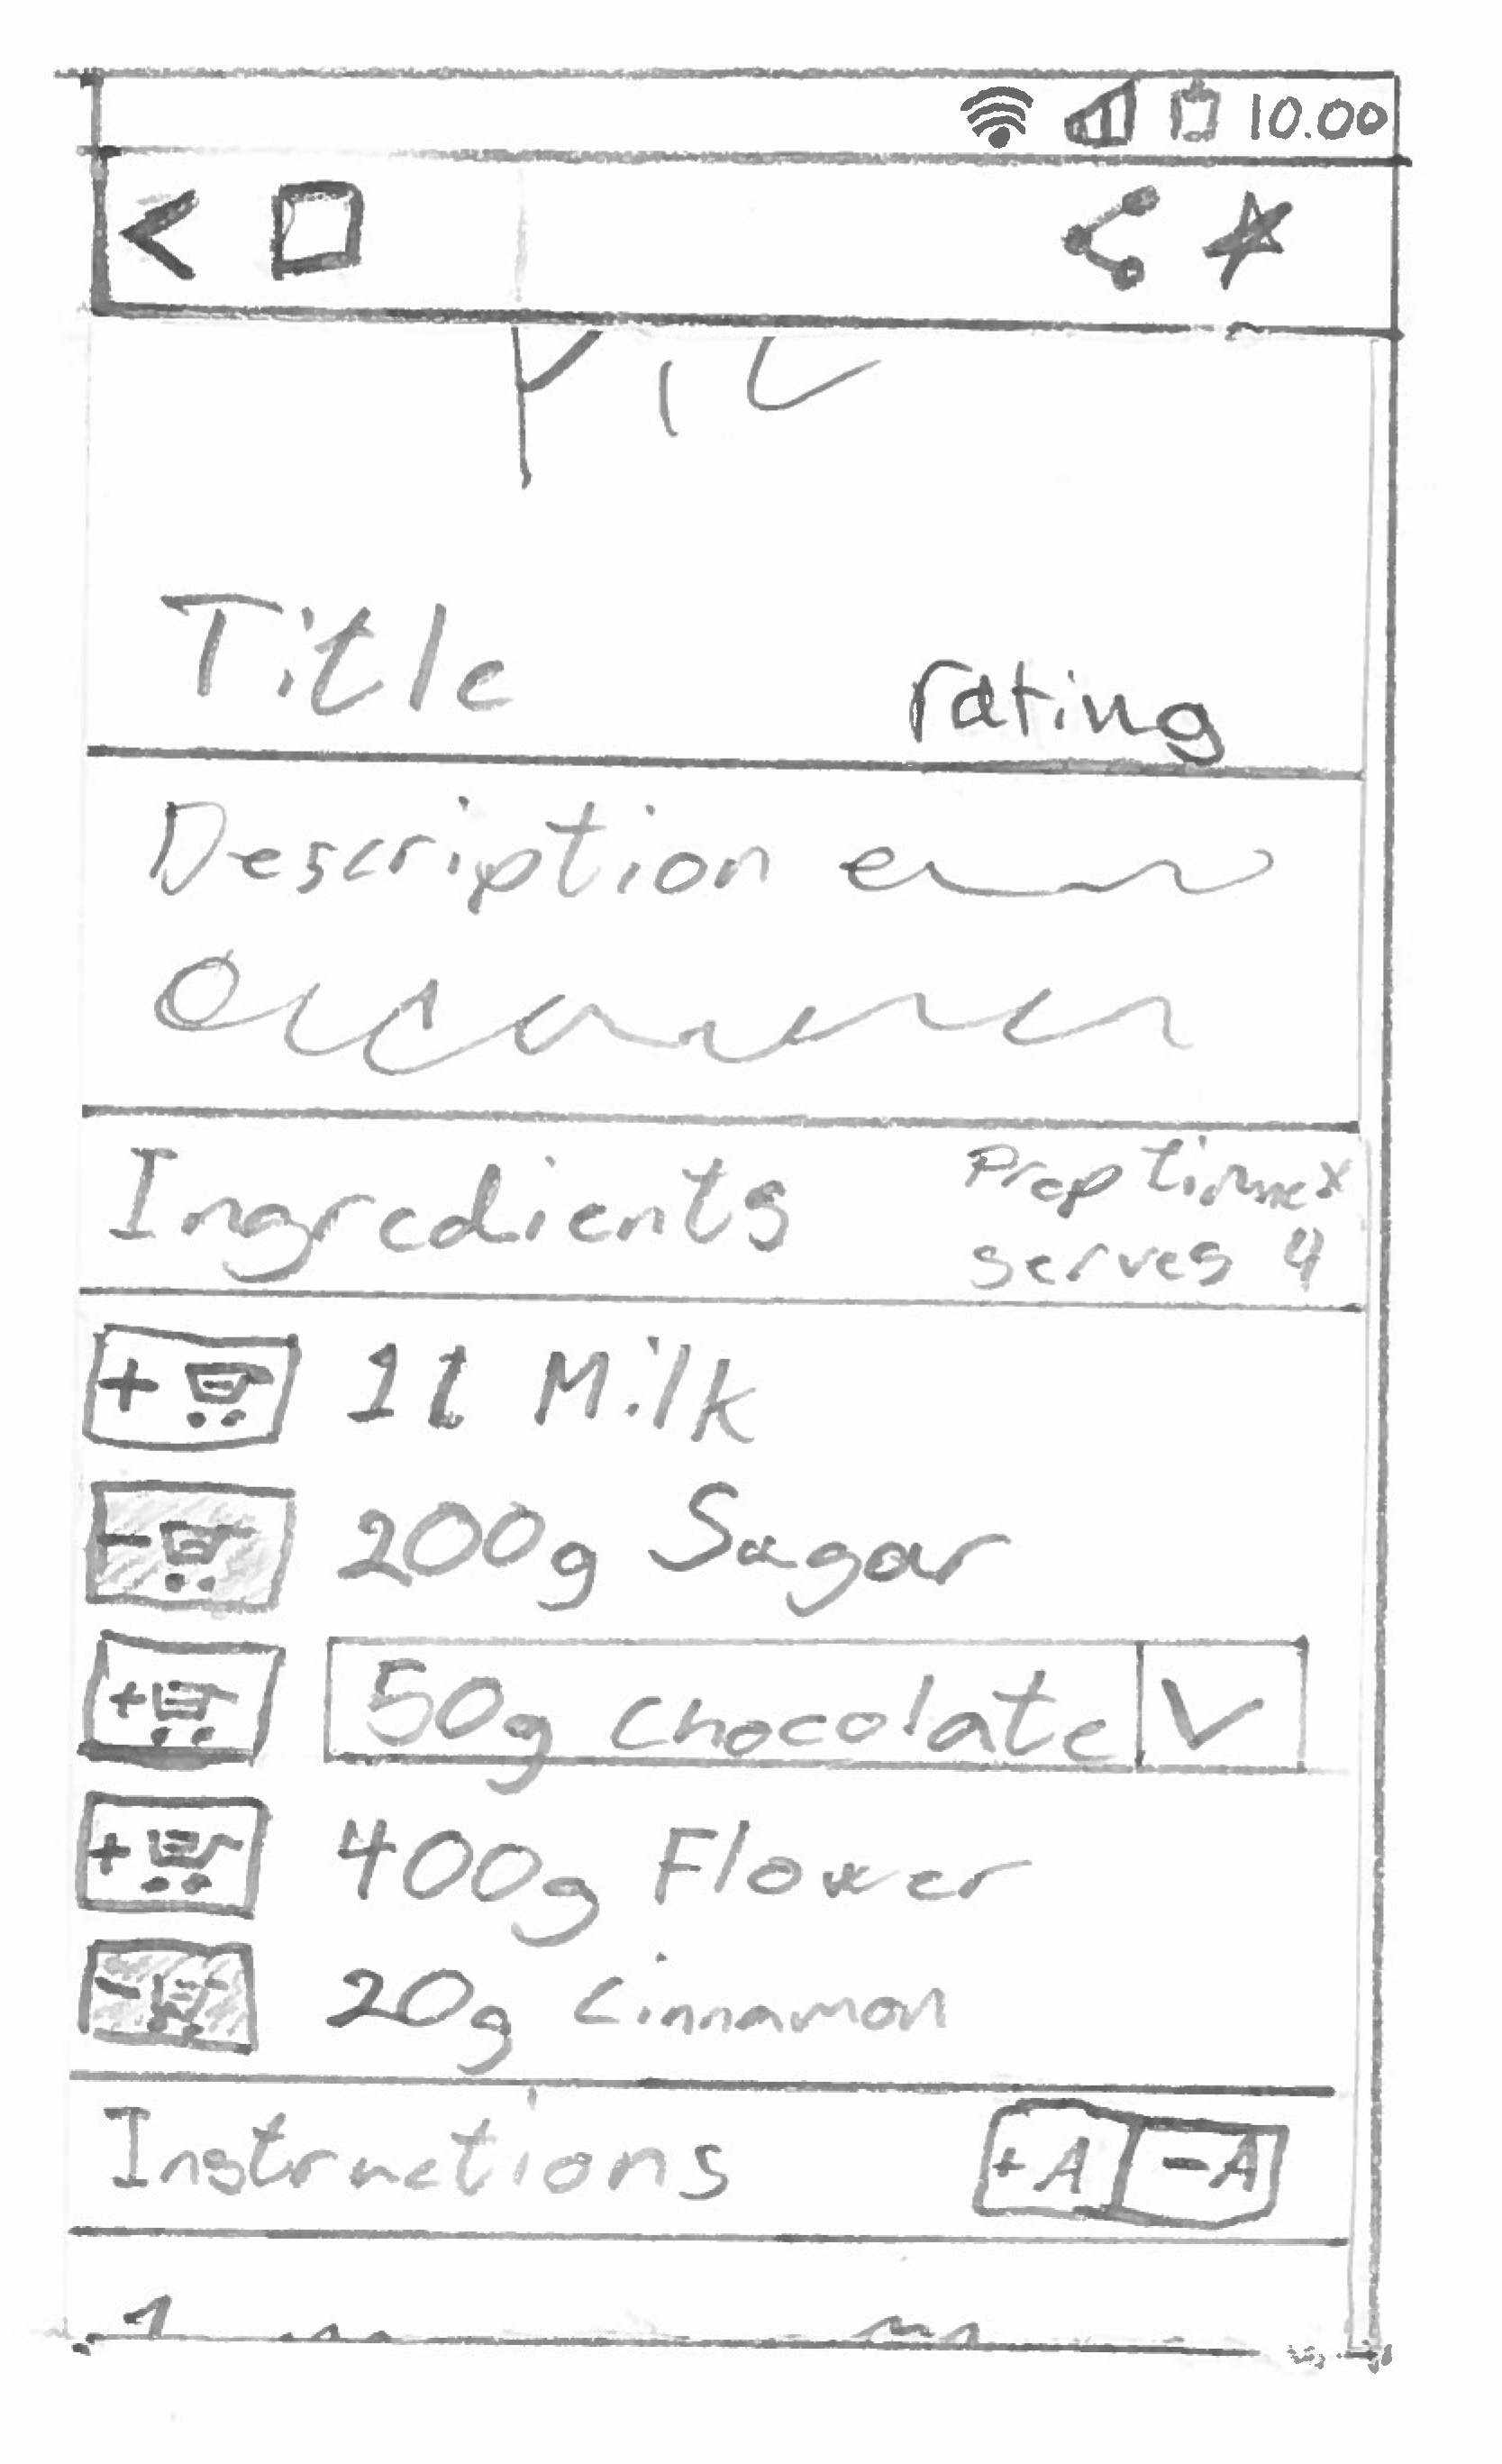 10.00
Title rating
Description
Ingredients
Prep time x
serves 4
+ 1l Milk
- 200g Sugar
+ 50g chocolate
+ 400g Flower
- 20g Cinnamon
Instructions +A -A
1